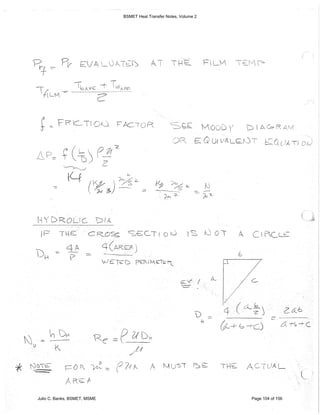 BSMET Heat Transfer Notes, Volume 2
Prf = Pr EVALUATED AT THE FILM TEMP
TFILM = TWAVE + TMADD / 2
f = FRICTION FACTOR SEE MOODY DIAGRAM
OR EQUIVALENT EQUATION
ΔP = f (L/D) ρū² / 2
HYDROLIC DIA
IF THE CROSS SECTION IS NOT A CIRCLE
DH = 4A / P = 4(AREA) / WETTED PERIMETER
b
EX! a c
DH = 4(ab/2) / (a+b+c) = 2ab / a+b+c
Nu = h DH / K Re = ρ ū DH / μ
* NOTE FOR ṁ = ρūA A MUST BE THE ACTUAL
AREA
Julio C. Banks, BSMET, MSME Page 104 of 158